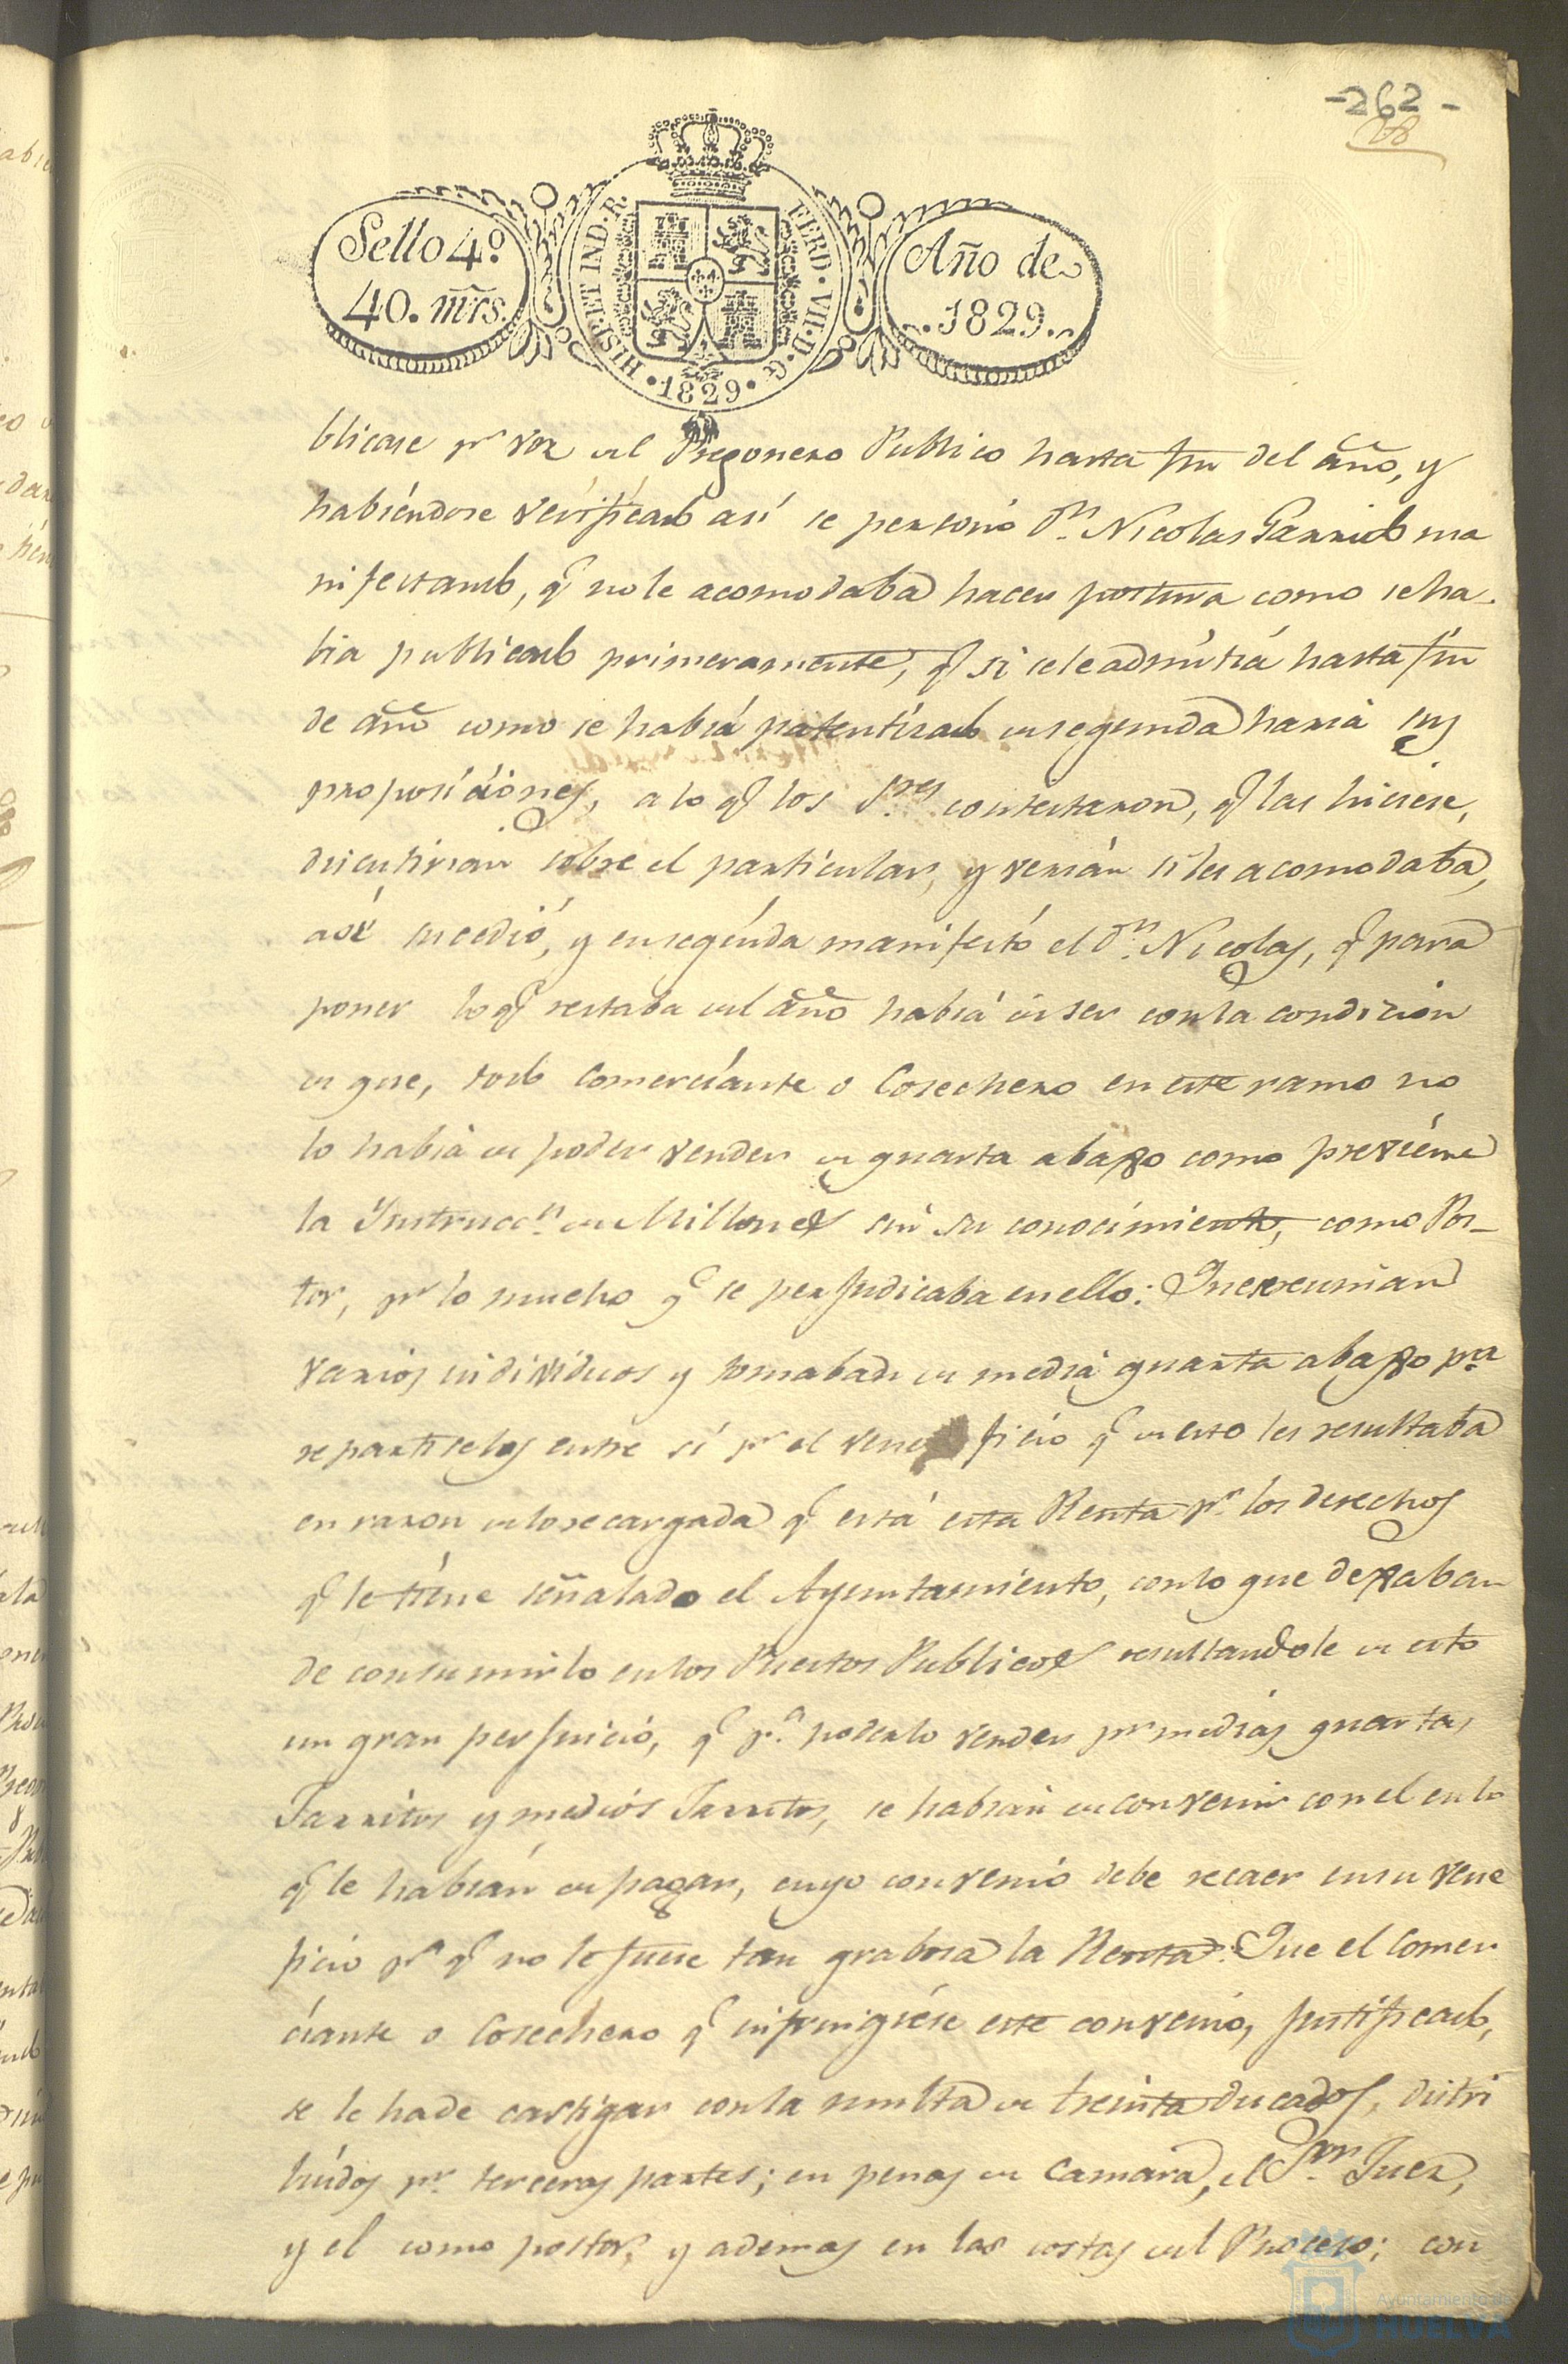 -262-
Sello 4º
40. mrs.
HISP. ET IND. R.
FERD. VII. D. G.
1829
Año de
1829.
blicase pr voz del Pregonero Publico hasta fin del año, y
habiéndose verificado así se personó Dn. Nicolas Garrido ma
nifestando, q. no le acomodaba hacer postura como se ha-
bia publicado primeramente, q. si se le admitía hasta fin
de año como se habia patentizado en segunda haria sus
proposiciones, a lo q. los Sres. contestaron, q. las hiciese,
discutirian sobre el particular, y verián si les acomodaba,
así sucedió, y enseguida manifestó el Dn. Nicolas, q. para
poner lo q. restaba del año habia de ser con la condicion
de que, todo Comerciante o Cosechero en este ramo no
lo habia de poder vender de quarta abaxo como previéne
la Instruccn. de Millones sin su conocimiento, como Pos-
tor, pr lo mucho q. se perjudicaba en ello: Que se reunian
varios individuos y tomaban de media quarta abaxo pa
repartirselos entre sí pr el venefício q. de esto les resultaba
en razon de lo recargada q. está esta Renta pr. los derechos
q. le tiene señalado el Ayuntamiento, con lo que dexaban
de consumirlo en los Puestos Publicos resultandole de esto
un gran perjuicio, q. pa. poderlo vender pr medias quartas,
Jarritos y medios Jarritos, se habian de convenir con el en lo
q. le habian de pagar, cuyo convenio debe recaer en su vene
ficio pr q. no le fuese tan grabosa la Renta: Que el Comer
ciante o Cosechero q. infringiése este convenio, justificado,
se le ha de castigar con la multa de treinta ducados, distri
buidos pr. terceras partes; en penas de Camara, el Sor. Juez,
y el como postor, y ademas en las costas del Proceso; con
Ayuntamiento de
HUELVA